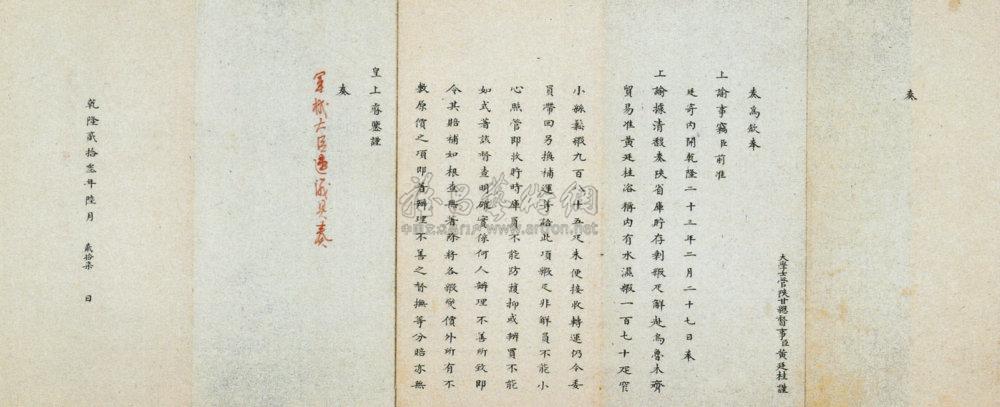 奏
大學士管陝甘總督事臣黃廷桂謹
奏為欽奉
上諭事竊臣前准
廷寄內開乾隆二十三年二月二十七日奉
上諭據清馥奏陝省庫貯存剩緞疋解赴烏魯木齊
貿易准黃廷桂洛稱內有水濕緞一百七十疋窄
小綜鬆緞九百八十五疋未便接收轉運仍令委
員帶回另換補運等語此項緞疋非解員不能小
心照管即扵貯時庫員不能防護抑或辦買不能
如式著該督查明確實係何人辦理不善所致即
令其賠補如根查無着除將各緞變價外所有不
敷原價之項即著辦理不善之督撫等分賠亦無
皇上睿鑒謹
奏
軍機大臣速議具奏
乾隆貳拾叁年陸月 貳拾柒 日
雅昌藝術網
中国艺术品门户 www.artron.net